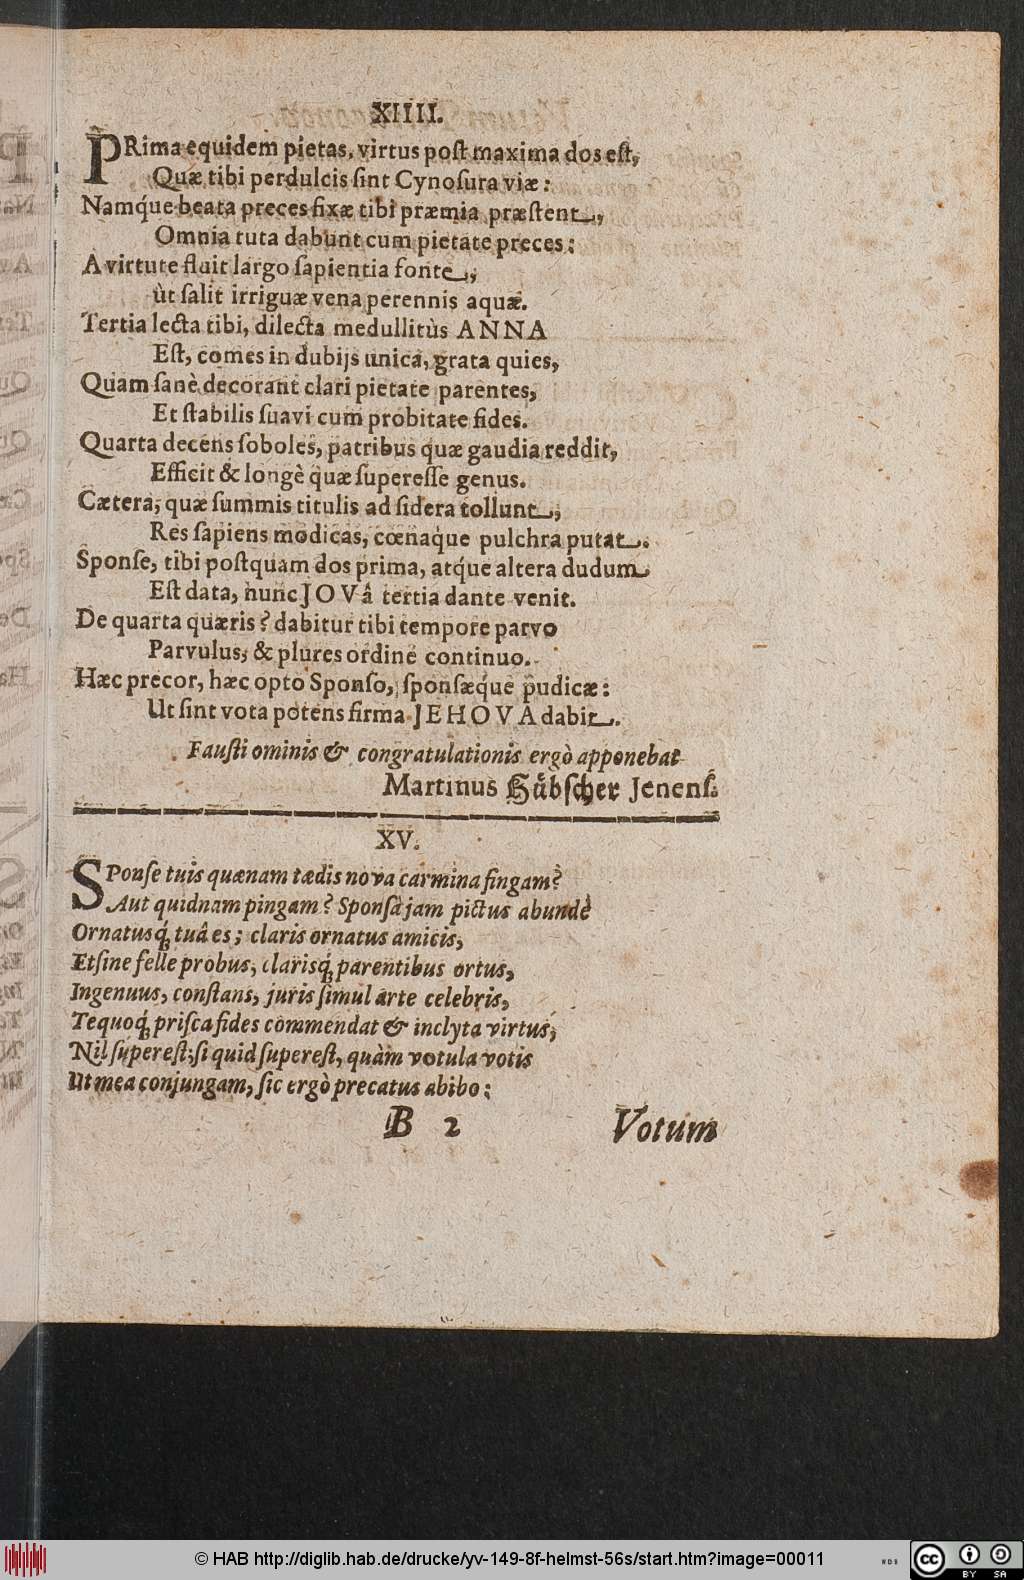 XIIII.
PRima equidem pietas, virtus post maxima dos est,
Quæ tibi perdulcis sint Cynosura viæ:
Namq́ue beata preces fixæ tibi præmia præstent,
Omnia tuta dabunt cum pietate preces:
A virtute fluit largo sapientia fonte,
ùt salit irriguæ vena perennis aquæ.
Tertia lecta tibi, dilecta medullitùs ANNA
Est, comes in dubijs unica, grata quies,
Quam sanè decorant clari pietate parentes,
Et stabilis suavi cum probitate fides.
Quarta decens soboles, patribus quæ gaudia reddit,
Efficit & longè quæ superesse genus.
Cætera, quæ summis titulis ad sidera tollunt,
Res sapiens modicas, cœnaq́ue pulchra putat.
Sponse, tibi postquam dos prima, atq́ue altera dudum
Est data, nunc JOVâ tertia dante venit.
De quarta quæris? dabitur tibi tempore parvo
Parvulus, & plures ordine continuo.
Hæc precor, hæc opto Sponso, sponsæq́ue pudicæ:
Ut sint vota potens firma JEHOVA dabit.
Fausti ominis & congratulationis ergò apponebat
Martinus Hübscher Jenens.
XV.
SPonse tuis quænam tædis nova carmina fingam?
Aut quidnam pingam? Sponsa jam pictus abundè
Ornatusq́; tuâ es; claris ornatus amicis,
Et sine felle probus, clarisq́; parentibus ortus,
Ingenuus, constans, juris simul arte celebris,
Te quoq́; prisca fides commendat & inclyta virtus,
Nil superest; si quid superest, quàm votula votis
Ut mea conjungam, sic ergò precatus abibo:
B 2 Votum
© HAB http://diglib.hab.de/drucke/yv-149-8f-helmst-56s/start.htm?image=00011
WDB
cc BY SA